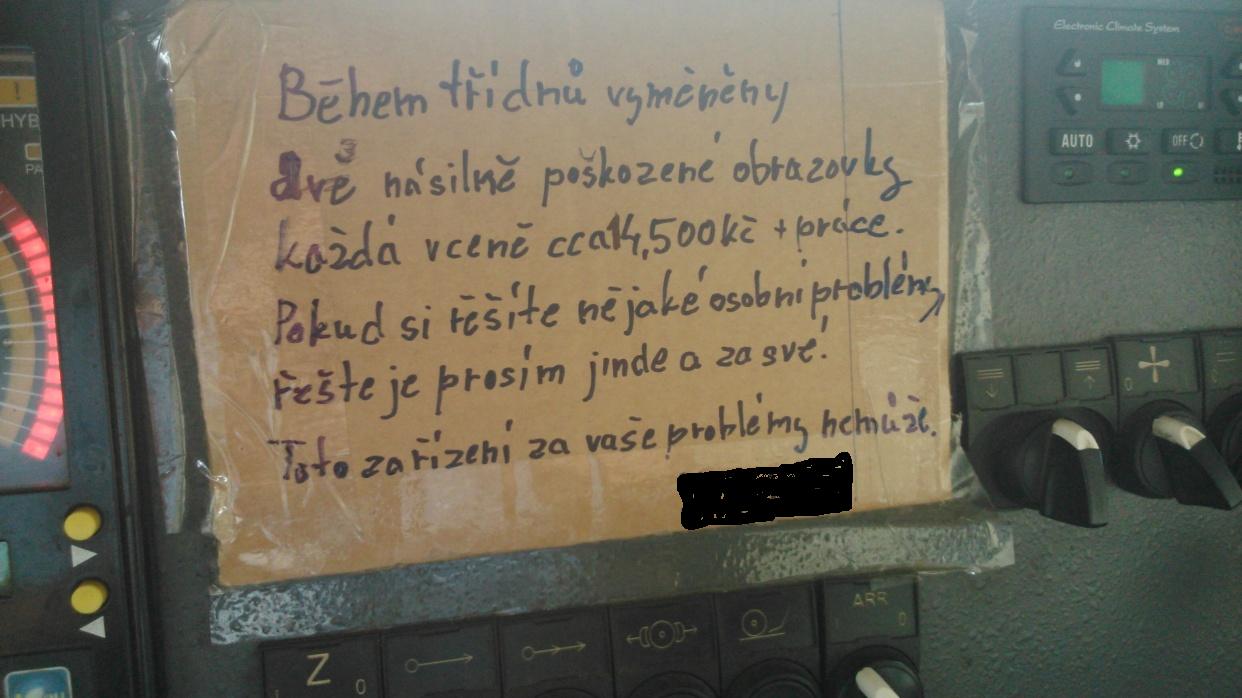 Během třídnů vyměněny
dvě násilně poškozené obrazovky
každá vceně cca14,500kč + práce.
Pokud si řěšíte nějaké osobní problémy
řešte je prosím jinde a za své!
Toto zařízení za vaše problémy nemůže.
Electronic Climate System
AUTO
OFF
MED
LO
HI
!
HYB
PA
Z
0
ARR
0
0